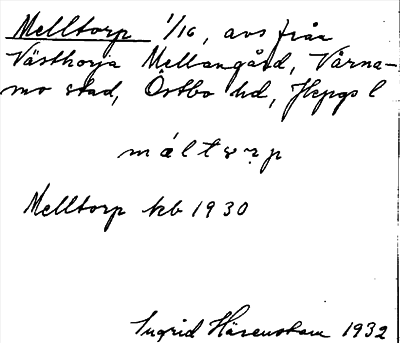 Melltorp 1/16, avs från
Västhorja Mellangård, Värna-
mo stad, Östbo hd, Jkpgs l
máltɤr̥p
Melltorp kb 1930
Ingrid Härenstam 1932